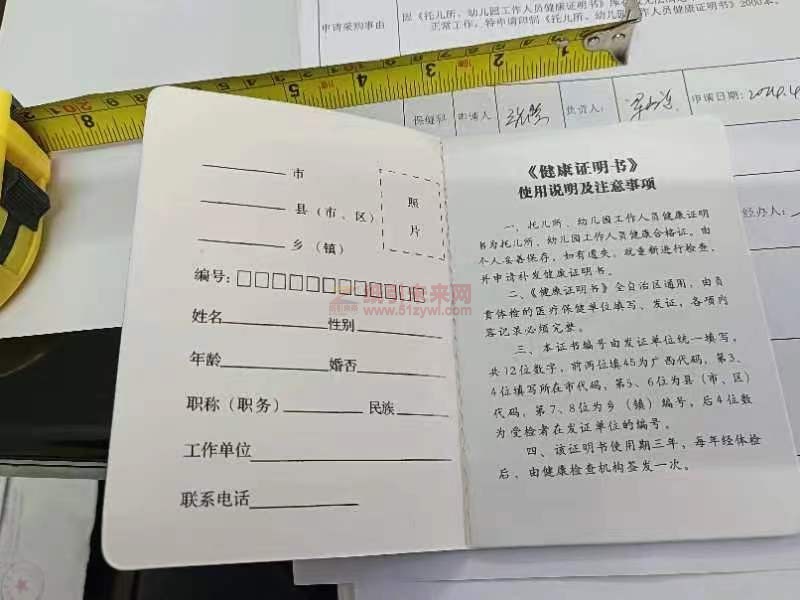 申请采购事由
正常工作，特申请印制《托儿所、幼儿园工作人员健康证明书》2000本。
保健科
申请人
负责人：
申请日期：2024.4
经办人：
8
5
4
3
2
1
市
县（市、区）
乡（镇）
照
片
编号：□□□□□□□□□□□□
姓名 性别
年龄 婚否
职称（职务） 民族
工作单位
联系电话
《健康证明书》
使用说明及注意事项
一、托儿所、幼儿园工作人员健康证明
书为托儿所、幼儿园工作人员健康合格证。由
个人妥善保存，如有遗失，就重新进行检查，
并申请补发健康证明书。
二、《健康证明书》全自治区通用，由负
责体检的医疗保健单位填写、发证，各项内
容记录必须完整。
三、本证书编号由发证单位统一填写，
共12位数字，前两位填45为广西代码，第3、
4位填写所在市代码，第5、6位为县（市、区）
代码，第7、8位为乡（镇）编号，后4位数
为受检者在发证单位的编号。
四、该证明书使用期三年，每年经体检
后，由健康检查机构签发一次。
www.51zywl.com